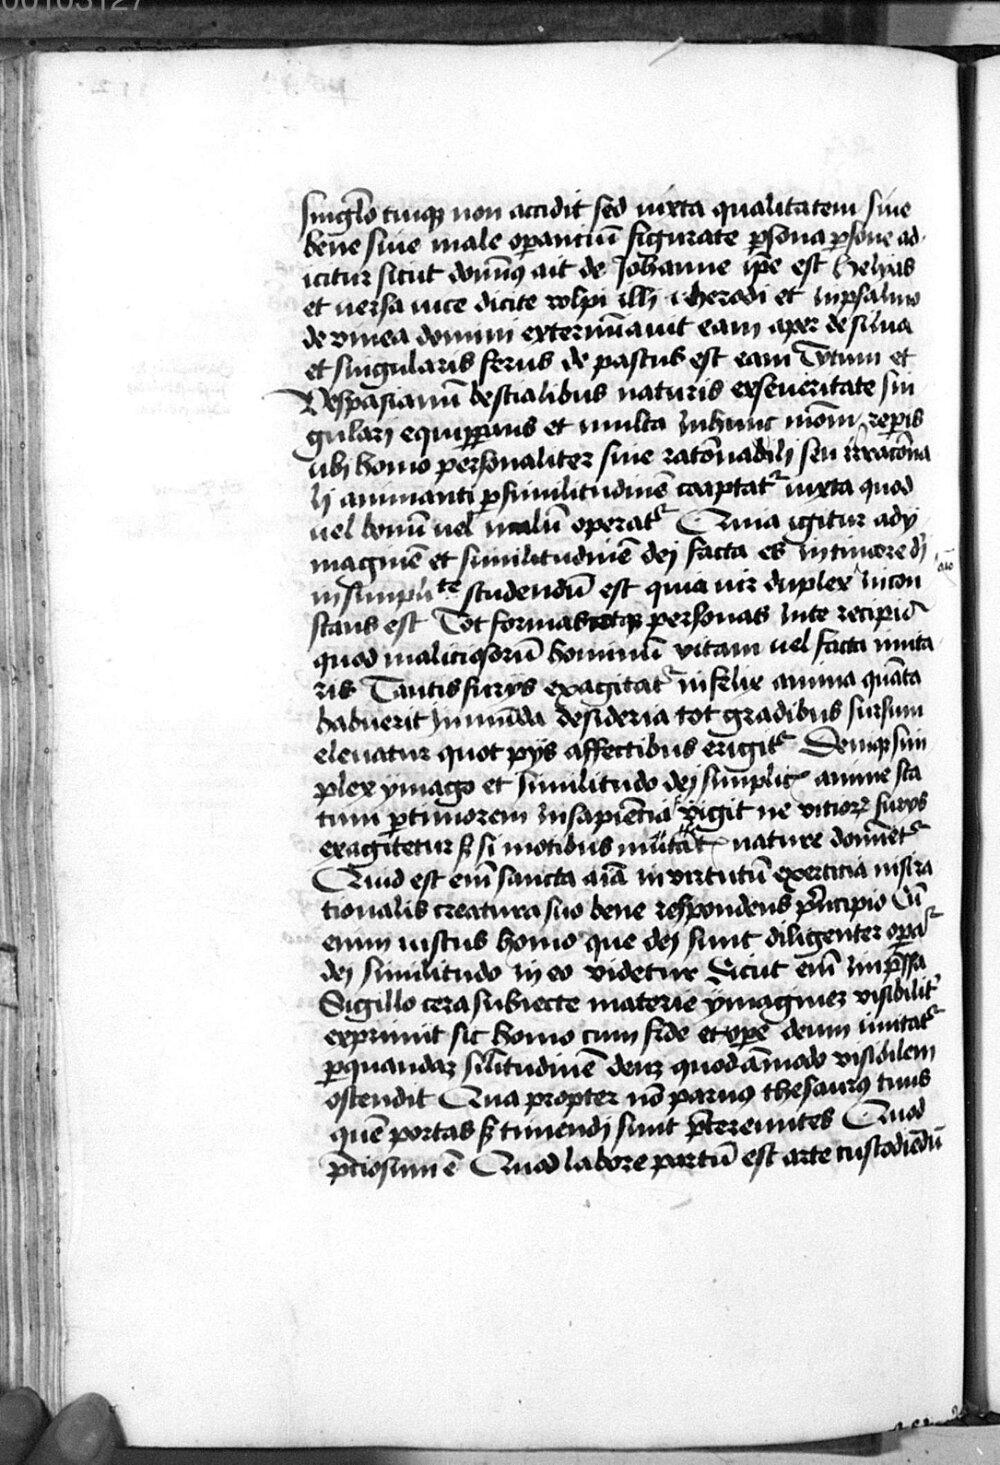 00103127
singlo cuiq non accidit sed iuxta qualitatem siue
bene siue male operantiū figurate psona psone ad
icitur sicut domīus ait de Johanne ipe est helyas
et uersa uice dicite volpi illi i herodi et in psalmo
de vinea domini extermīauit eam aper de silua
et singularis ferus de pastus est eam Tytum et
Vespasianū bestialibus naturis ex seueritate sin
gulari equippans et multa in hunc mōm reperis
ubi homo personaliter siue ratōnabili seu irracōna
li animanti p similitudinē coaptatr iuxta quod
uel bonū uel malū operatr Quia igitur ad y
maginē et similitudinē dei facta es in timore di
in simplitte studendū est quia uir duplex incon
stans est Tot formas totq personas in te recipis
quod maliciosorū hominū vitam uel facta imita
ris Tantis furijs exagitatr infelix anima quāta
habuerit immūda desideria tot gradibus sursum
eleuatur quot pijs affectibus erigitr Deniq sim
plex ymago et similitudo dei simplicr anime sta
tum p timorem in sapiencia rigit ne vicior furijs
exagitetur s si motibus nature domētr
Quid est eim sancta aīa in virtutū exercicia nisi ra
tionalis creatura suo bene respondens pncipio Cū
enim iustus homo que dei sunt diligenter opatr
dei similitudo in eo videtur Sicut eim impssa
Sigillo cera subiecte materie ymaginez visibilitr
exprimit sic homo cum fide et ope deum imitatr
p quandaz silitudinē deuz quodāmodo visibilem
ostendit Qua propter nō paruus thesaurus tuus
quē portas s timendi sunt ptereuntes Quod
pciosum ē Quod labore partū est arte custodiēdū